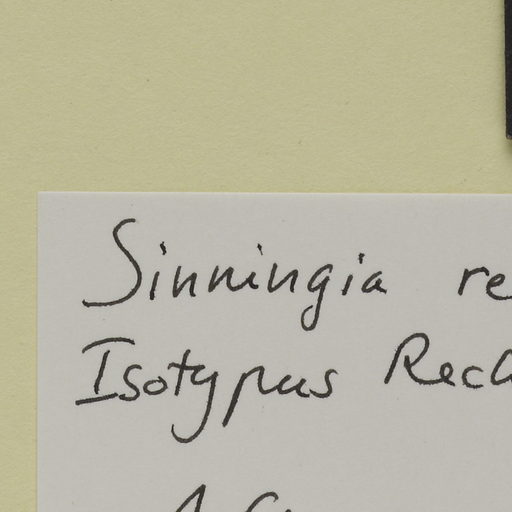 Sinningia re
Isotypus Rech